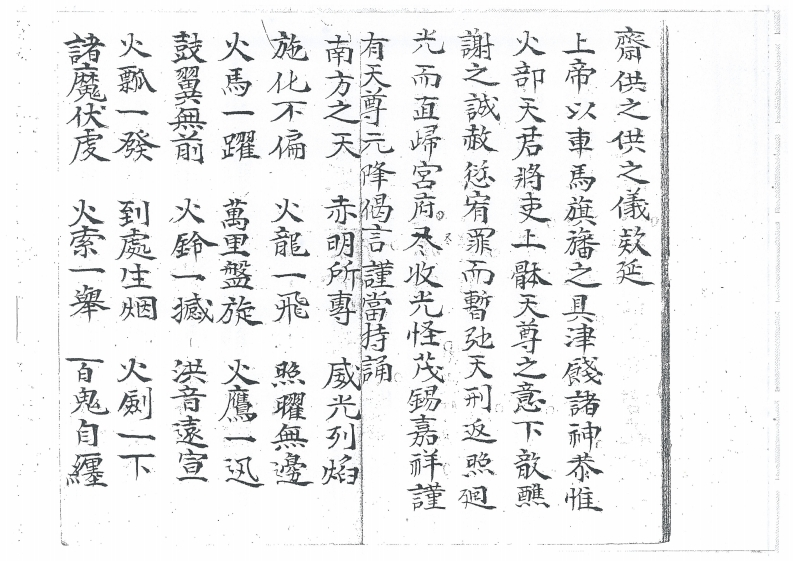 齋供之供之儀欵延
上帝以車馬旗旛之具津餞諸神恭惟
火部天君將吏上躰天尊之意下歆醮
謝之誠赦愆宥罪而暫弛天刑返照廻
光而直歸宮府尽收光怪茂錫嘉祥謹
有天尊元降偈言謹當持誦
南方之天　赤明所專　威光列焰
施化不偏　火龍一飛　照曜無邊
火馬一躍　萬里盤旋　火鷹一迅
鼓翼無前　火鈴一撼　洪音遠宣
火瓢一發　到處生烟　火劍一下
諸魔伏虔　火索一舉　百鬼自纏